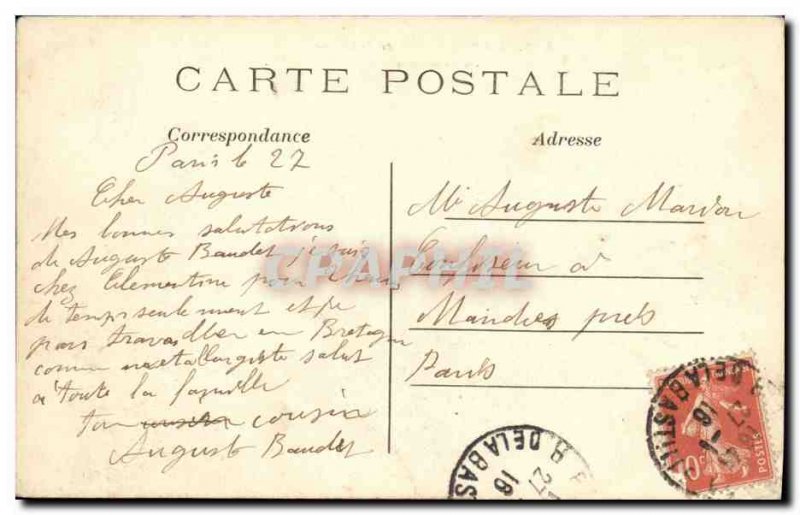 CARTE POSTALE
Correspondance
Paris le 27
Cher Auguste
Mes bonnes salutations
de Auguste Baudet je suis
chez Clementine pour
de temps seulement et je
pars travailler en Bretagne
comme metallurgiste salut
a toute la famille
ton cousin
August Baudet
Adresse
Mr Auguste Mardon
à
Mandres près
Paris
CPAPHIL
R. DE LA BASTILLE
27
18
DE LA BASTILLE
18
10c
POSTES